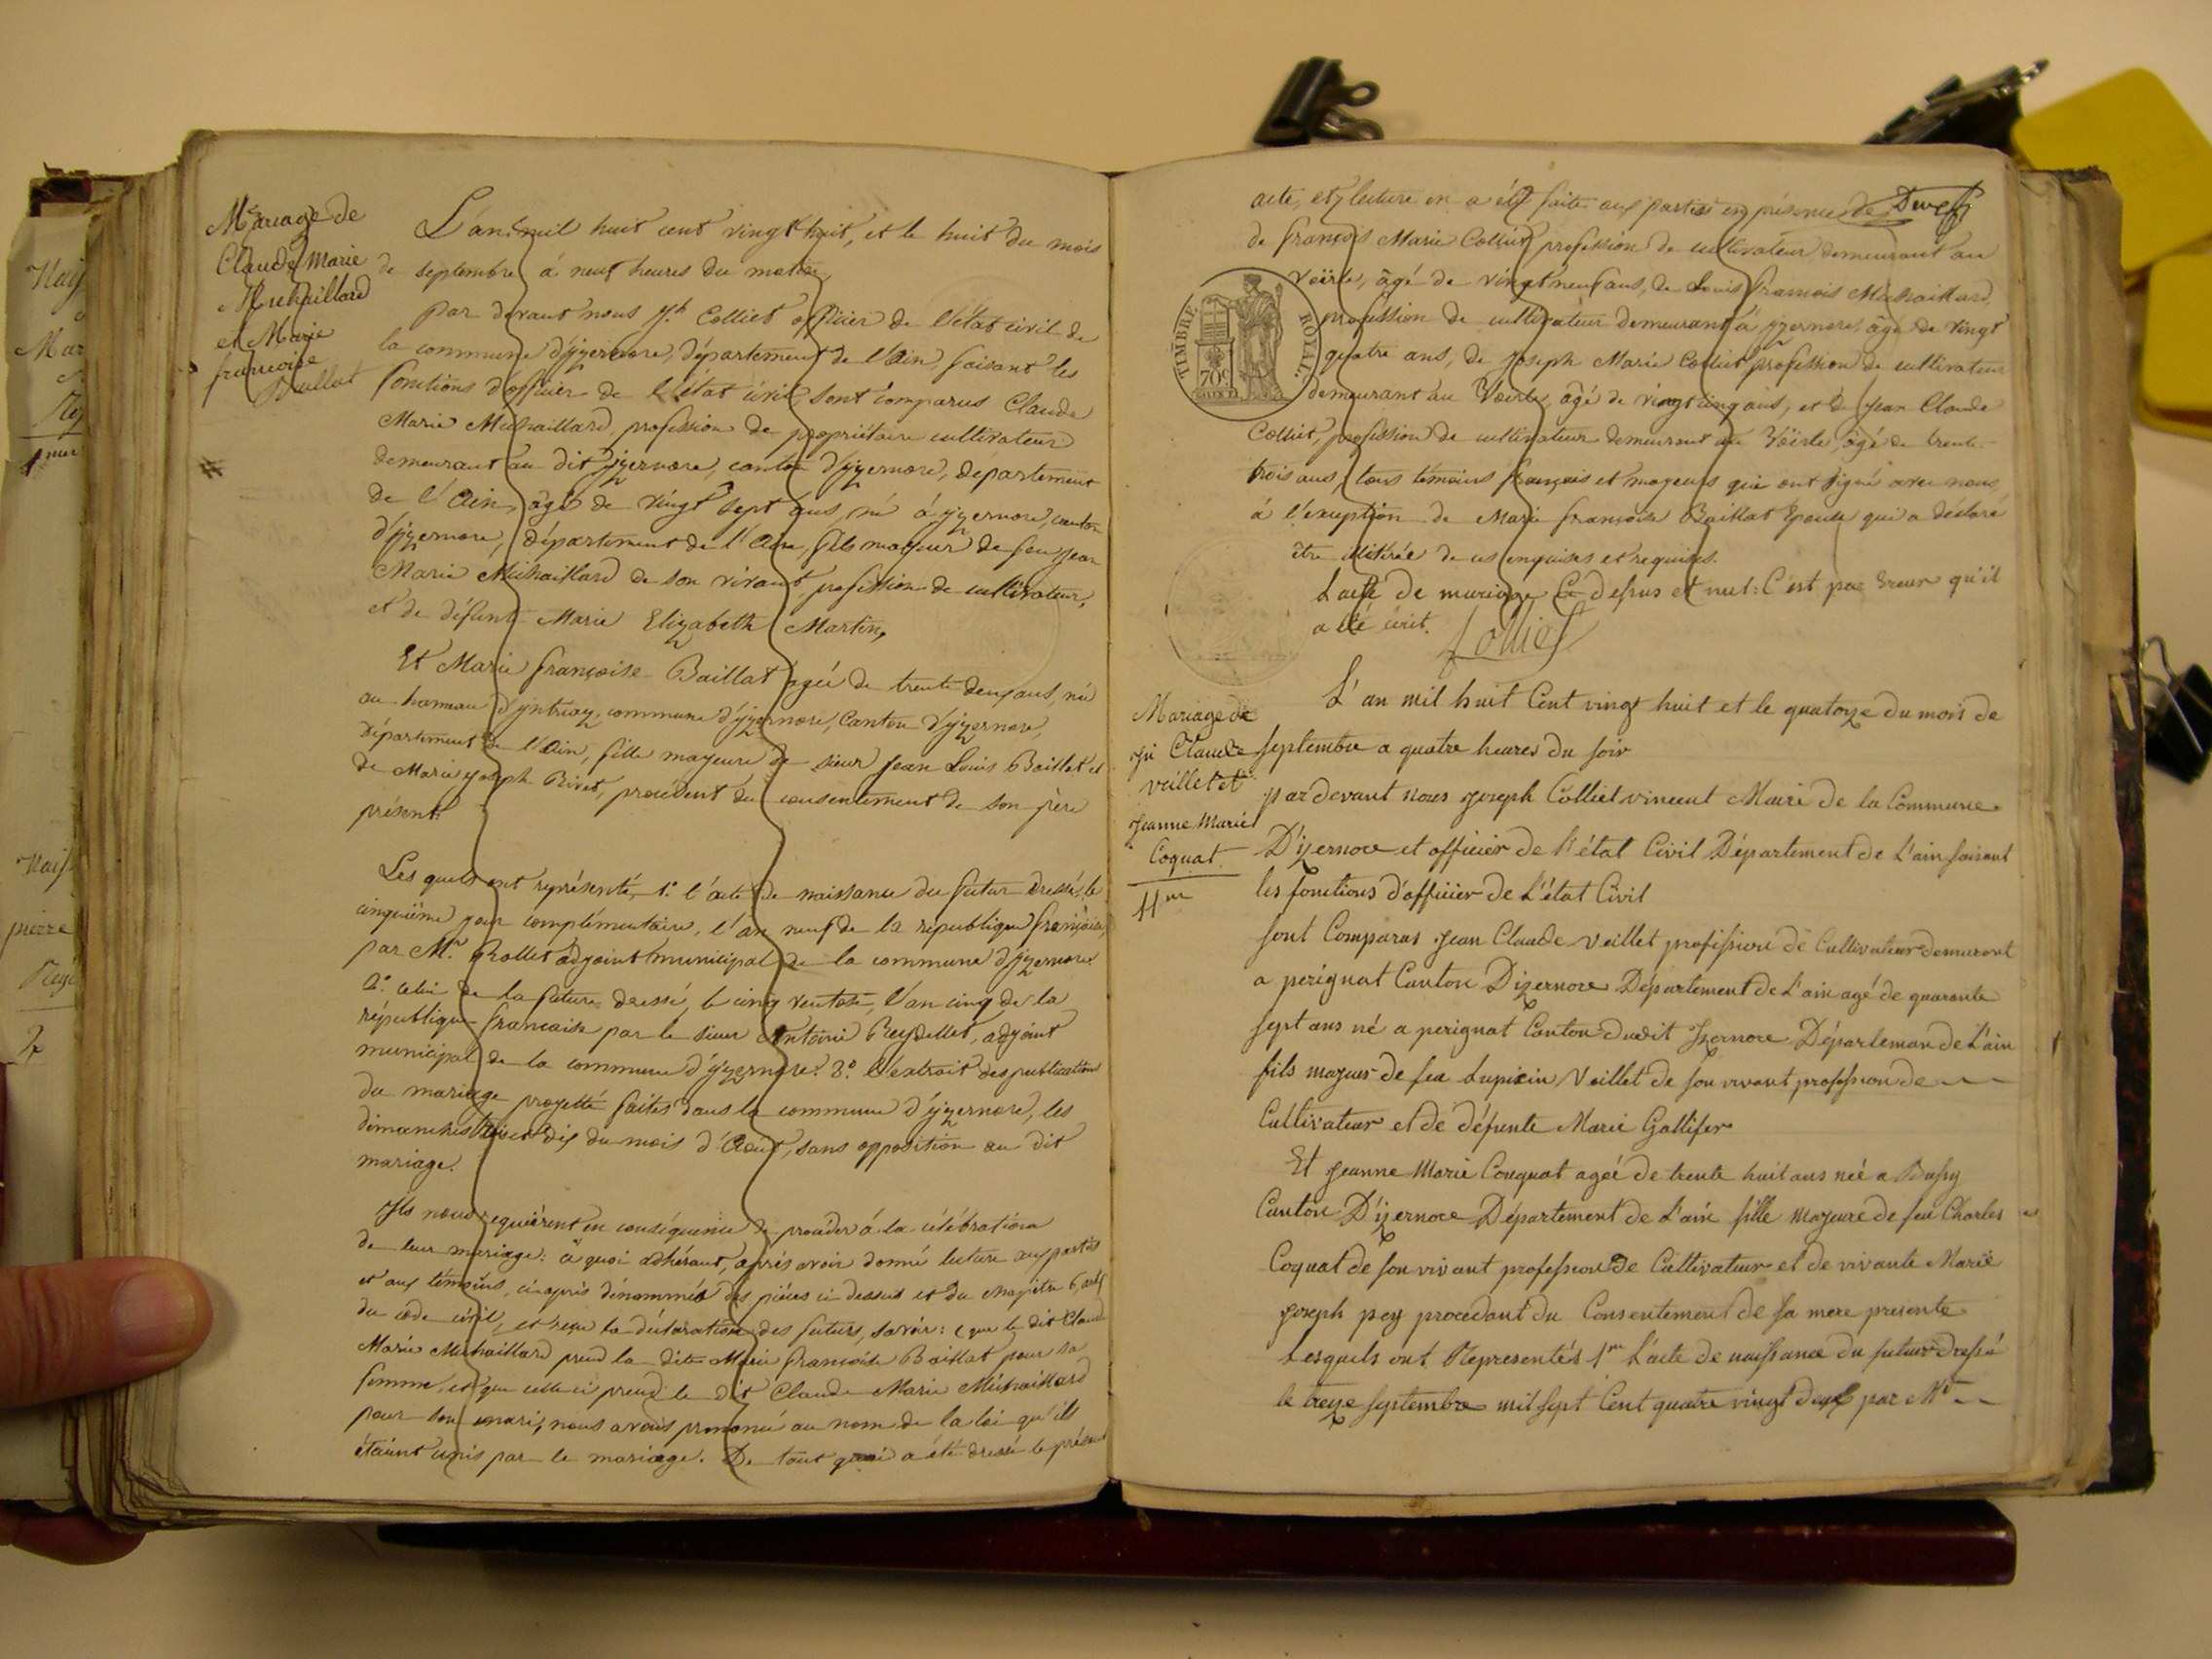 Mariage de
Claude Marie
Michaillard
et Marie
francoise
Baillat
L'an mil huit cent vingt huit, et le huit du mois
de septembre à neuf heures du matin,
Par devant nous Jh Colliet officier de l'état civil de
la commune d'yzernore, département de l'Ain, faisant les
fonctions d'officier de l'état civil, sont comparus Claude
Marie Michaillard, profession de propriétaire cultivateur
demeurant au dit yzernore, canton d'yzernore, département
de l'Ain, âgé de vingt sept ans, né à yzernore, canton
d'yzernore, département de l'Ain, fils majeur de feu Jean
Marie Michaillard de son vivant, profession de cultivateur,
et de défunte Marie Elizabeth Martin,
Et Marie françoise Baillat âgée de trente deux ans, née
au hameau d'yntriaz, commune d'yzernore, Canton d'yzernore,
Département de l'Ain, fille mayeure de sieur Jean Louis Baillat et
de Marie Joseph Rivet, procédent du consentement de son père
présent.
Les quels ont représenté, 1.° l'acte de naissance du futur dressé, le
cinquième jour complémentaire, l'an neuf de la république française,
par Mr. Rollet adjoint municipal de la commune d'yzernore.
2.° celui de la future dressé, le cinq ventose, l'an cinq de la
république francaise par le sieur Antoine Reydellet, adjoint
municipal de la commune d'yzernore. 3.° l'extrait des publication
du mariage projetté faites dans la commune d'yzernore, les
dimanches trois et dix du mois d'Aout, sans opposition au dit
mariage.
Ils nous requièrent en conséquence de procéder à la célébration
de leur mariage: à quoi adhérant, après avoir donné lecture aux partes
et aux témoins, ci-après dénommés des pièces ci dessus et du chapitre 6,
du code civil, et reçu la déclaration des futurs, savoir: que le dit Claude
Marie Michaillard prend la dite Marie françoise Baillat pour sa
femme, et que celle ci prend le dit Claude Marie Michaillard
pour son mari; nous avons prononcé au nom de la loi qu'ils
étaient unis par le mariage. De tout quoi a été dressé le présent
acte, et lecture en a été faite aux parties en présence de
de françois Marie Colliet profession de cultivateur demeurant au
Voërle, âgé de vingt neuf ans, de Louis francois Michaillard,
profession de cultivateur demeurant à yzernore, âgé de vingt
quatre ans, de Joseph Marie Colliet profession de cultivateur
demeurant au Voërle, âgé de vingt cinq ans, et de Jean Claude
Colliet, profession de cultivateur demeurant au Voërle, âgé de trente
trois ans, tous témoins français et mayeurs qui ont signé avec nous
à l'exception de Marie françoise Baillat Epouse qui a déclaré
être illitérée de ce enquises et requises.
L'acte de mariage Ci dessus et nul: C'est par Ereur qu'il
a été écrit.
Colliet
TIMBRE ROYAL.
70c
Mariage de
Jn Claude
veillet et
Jeanne Marie
Coquat
11me
L'an mil huit Cent vingt huit et le quatorze du mois de
septembre a quatre heures du soir
par devant nous Joseph Colliet vincent Maire de la Commune
D'izernore et officier de l'état Civil Département de L'ain faisant
les fonctions d'officier de L'état Civil
sont Comparus Jean Claude Veillet profission de Cultivateur demeurant
a perignat Canton Dizernore Département de L'ain agé de quarante
sept ans né a perignat Canton dudit Izernore Départeman de L'ain
fils majeur de feu Lupicin Veillet de son vivant profession de
Cultivateur et de défunte Marie Gallifer
Et Jeanne Marie Couquat agée de trente huit ans née a Bussy
Canton D'izernore Département de L'ain fille majeure de feu Charles
Coquat de son vivant profession de Cultivateur et de vivante Marie
Joseph pey procedant du Consentement de sa mere presente
Lesquels ont Representés 1er L'acte de naissance du futur dressé
le treze septembre mil sept Cent quatre vingt deux par Mr
Mar
pierre